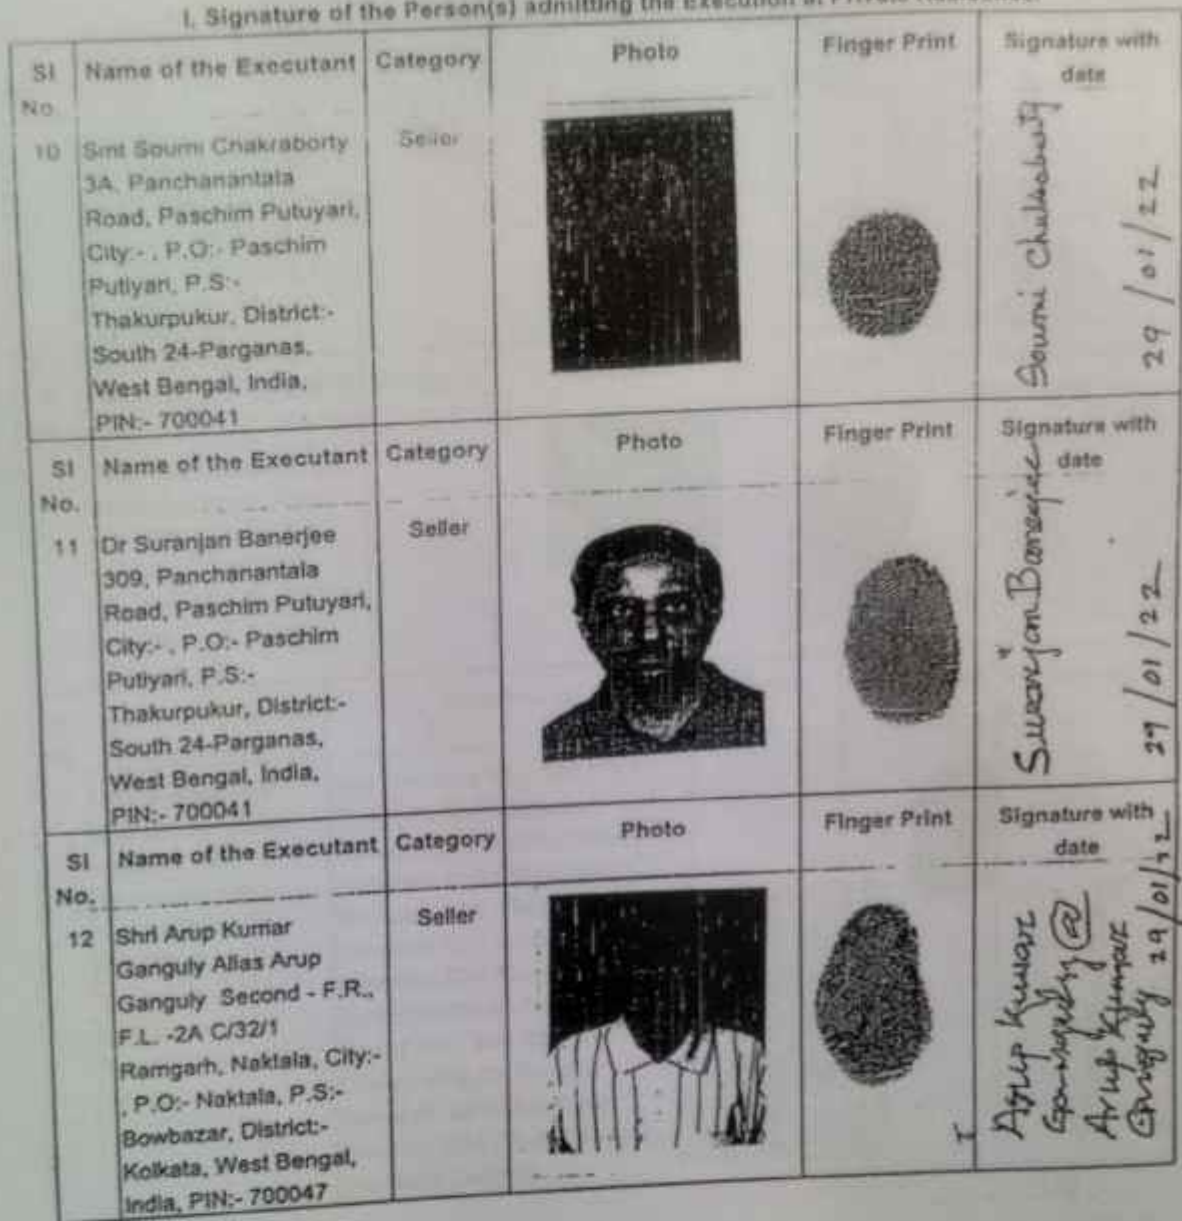 I. Signature of the Person(s) admitting the Execution at Private
Sl No. Name of the Executant Category Photo Finger Print Signature with date
10 Smt Soumi Chakraborty Seller
3A, Panchanantala
Road, Paschim Putuyari,
City:- , P.O:- Paschim
Putiyari, P.S:-
Thakurpukur, District:-
South 24-Parganas,
West Bengal, India,
PIN:- 700041
29/01/22
Sl No. Name of the Executant Category Photo Finger Print Signature with date
11 Dr Suranjan Banerjee Seller
309, Panchanantala
Road, Paschim Putuyari,
City:- , P.O:- Paschim
Putiyari, P.S:-
Thakurpukur, District:-
South 24-Parganas,
West Bengal, India,
PIN:- 700041
Suranjan Banerjee
29/01/22
Sl No. Name of the Executant Category Photo Finger Print Signature with date
12 Shri Arup Kumar Seller
Ganguly Alias Arup
Ganguly Second - F.R.,
F.L. -2A C/32/1
Ramgarh, Naktala, City:-
, P.O:- Naktala, P.S:-
Bowbazar, District:-
Kolkata, West Bengal,
India, PIN:- 700047
Arup Kumar
Ganguly @
Arup Kumar
Ganguly 29/01/22